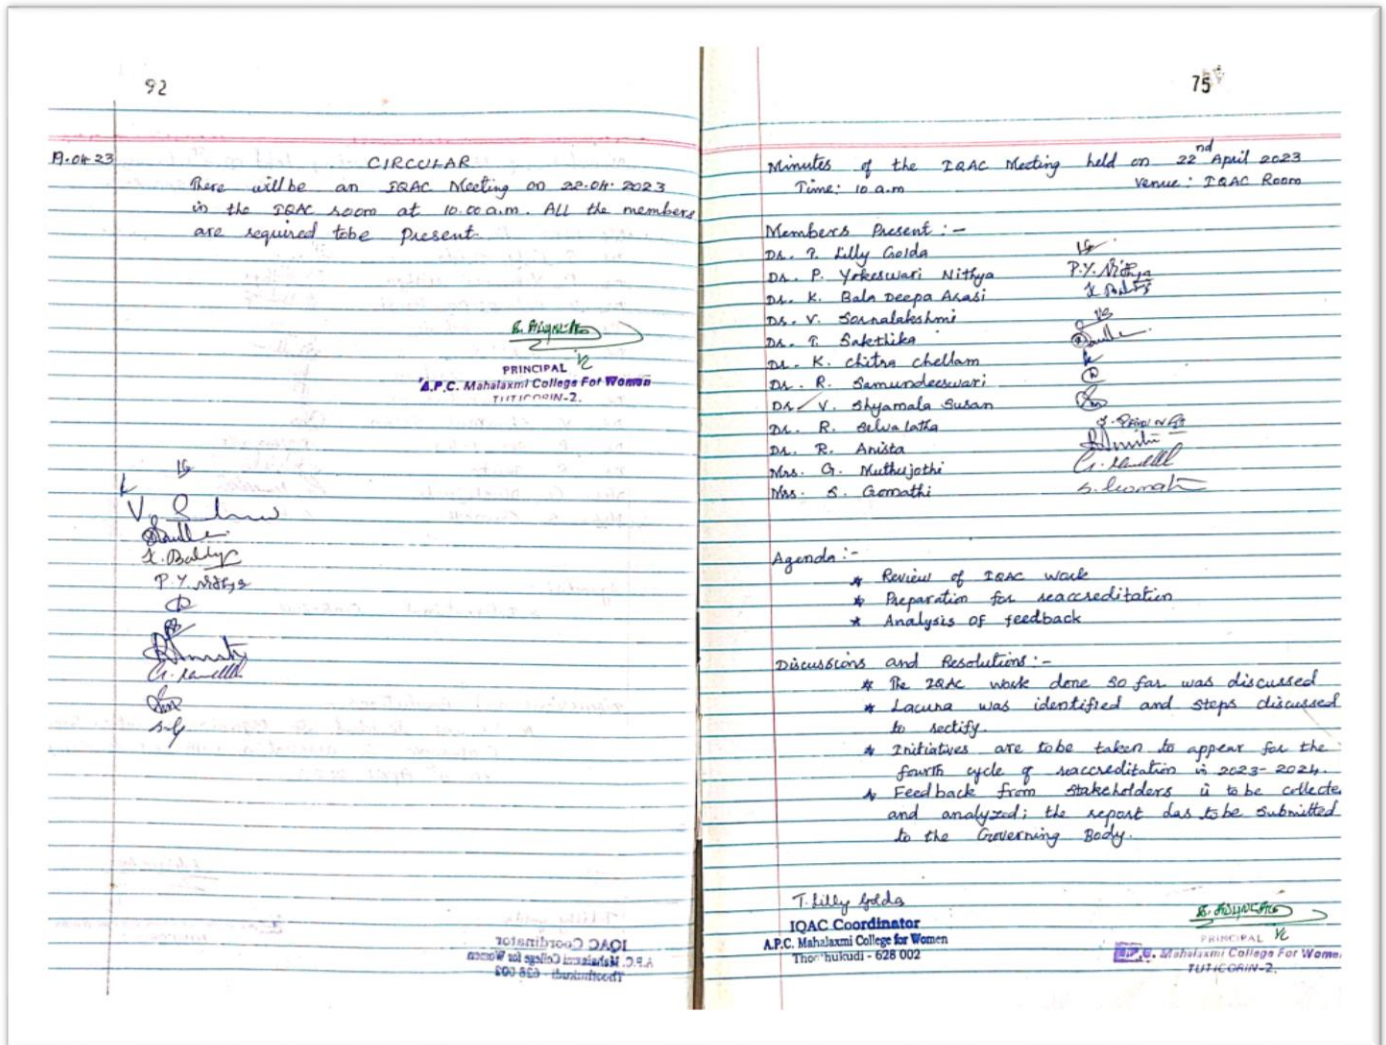 92
CIRCULAR
There will be an IQAC Meeting on 22.04.2023
in the IQAC room at 10.00 a.m. All the members
are required tobe Present.
PRINCIPAL
A.P.C. Mahalaxmi College For Women
TUTICORIN-2.
P.Y. Nithya
75
Minutes of the IQAC Meeting held on 22nd April 2023
Time: 10 a.m
Venue: IQAC Room
Members Present :-
Dr. T. Lilly Golda
Dr. P. Yokeswari Nithya
P.Y. Nithya
Dr. K. Bala Deepa Arasi
Dr. V. Sornalakshmi
Dr. T. Sakthika
Dr. K. Chitra Chellam
Dr. R. Samundeeswari
Dr. V. Shyamala Susan
Dr. R. Selvalatha
Dr. R. Anista
Mrs. G. Muthujothi
Mrs. S. Gomathi
S. Gomathi
Agenda :-
* Review of IQAC work
* Preparation for reaccreditation
* Analysis of feedback
Discussions and Resolutions :-
* The IQAC work done so far was discussed
* Lacuna was identified and steps discussed
to rectify.
* Initiatives are tobe taken to appear for the
fourth cycle of reaccreditation in 2023-2024.
* Feedback from stakeholders is to be collecte
and analyzed; the report has tobe submitted
to the Governing Body.
T. Lilly Golda
IQAC Coordinator
A.P.C. Mahalaxmi College for Women
Thoothukudi - 628 002
PRINCIPAL
Mahalaxmi College For Wome
TUTICORIN-2.